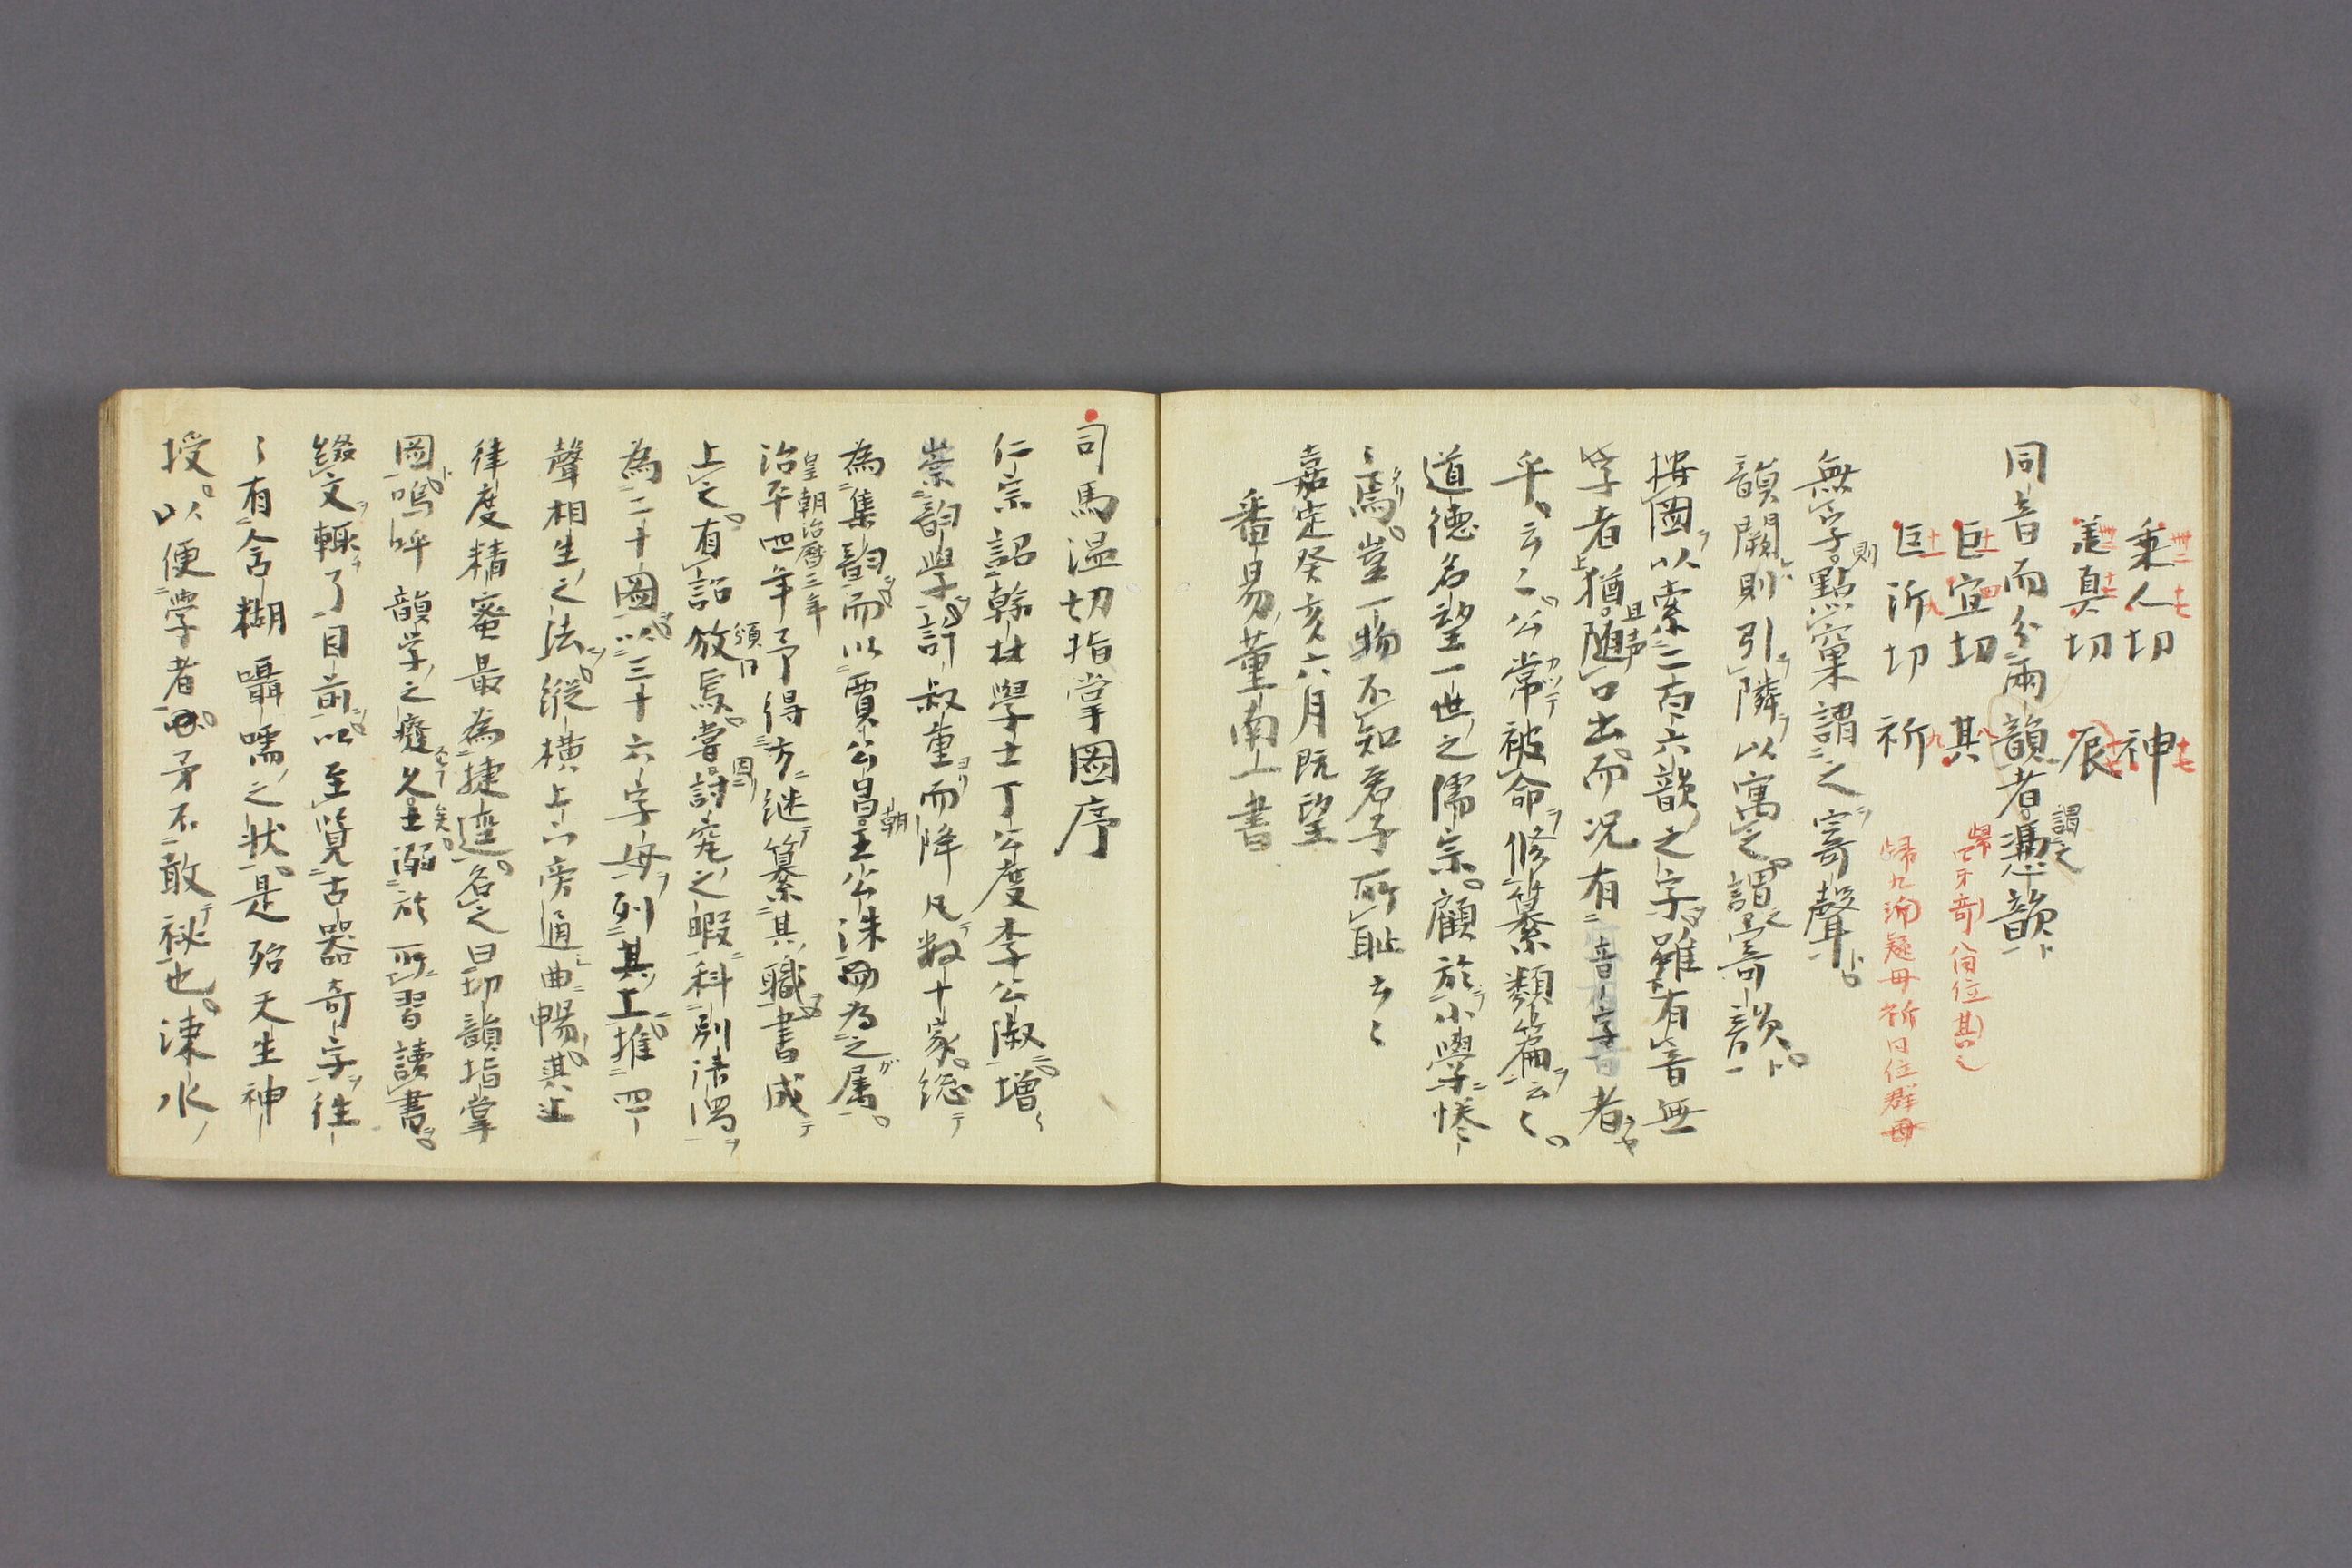 乗人切 神
羗真切 辰
同音而分兩韻者謂之憑韻
巨宜切 其
巨沂切 祈
無字則點窠謂之寄聲
韻闕則引隣以寓之謂之寄韻
按圖以索二百六韻之字雖有音無
字者猶且随口出而况有音一字者
乎云云公常被命修纂類篇云〻
道德名望一世之儒宗顧於小學惓
〻焉豈一物不知君子所耻云〻
嘉定癸亥六月既望
番昜董南一書
司馬温切指掌圖序
仁宗詔翰林學士丁公度李公淑増
崇韵學許叔重而降凡数十家総
為集韵而以賈公昌朝王公洙為之属
皇朝治暦三年
治平四年予得方継纂其職書成
上之有詔頒焉嘗因討究之暇科別清濁
為二十圖以三十六字母列其上推四
聲相生之法縦横上下旁通曲暢其
律度精蜜最為捷徑名之曰切韻指掌
圖嗚呼韻学之癈久矣溺於所習讀書
綴文輙了目前以至覧古器奇字往
〻有含糊囁嚅之状是殆天生神
授以便学者予不敢秘也涑水